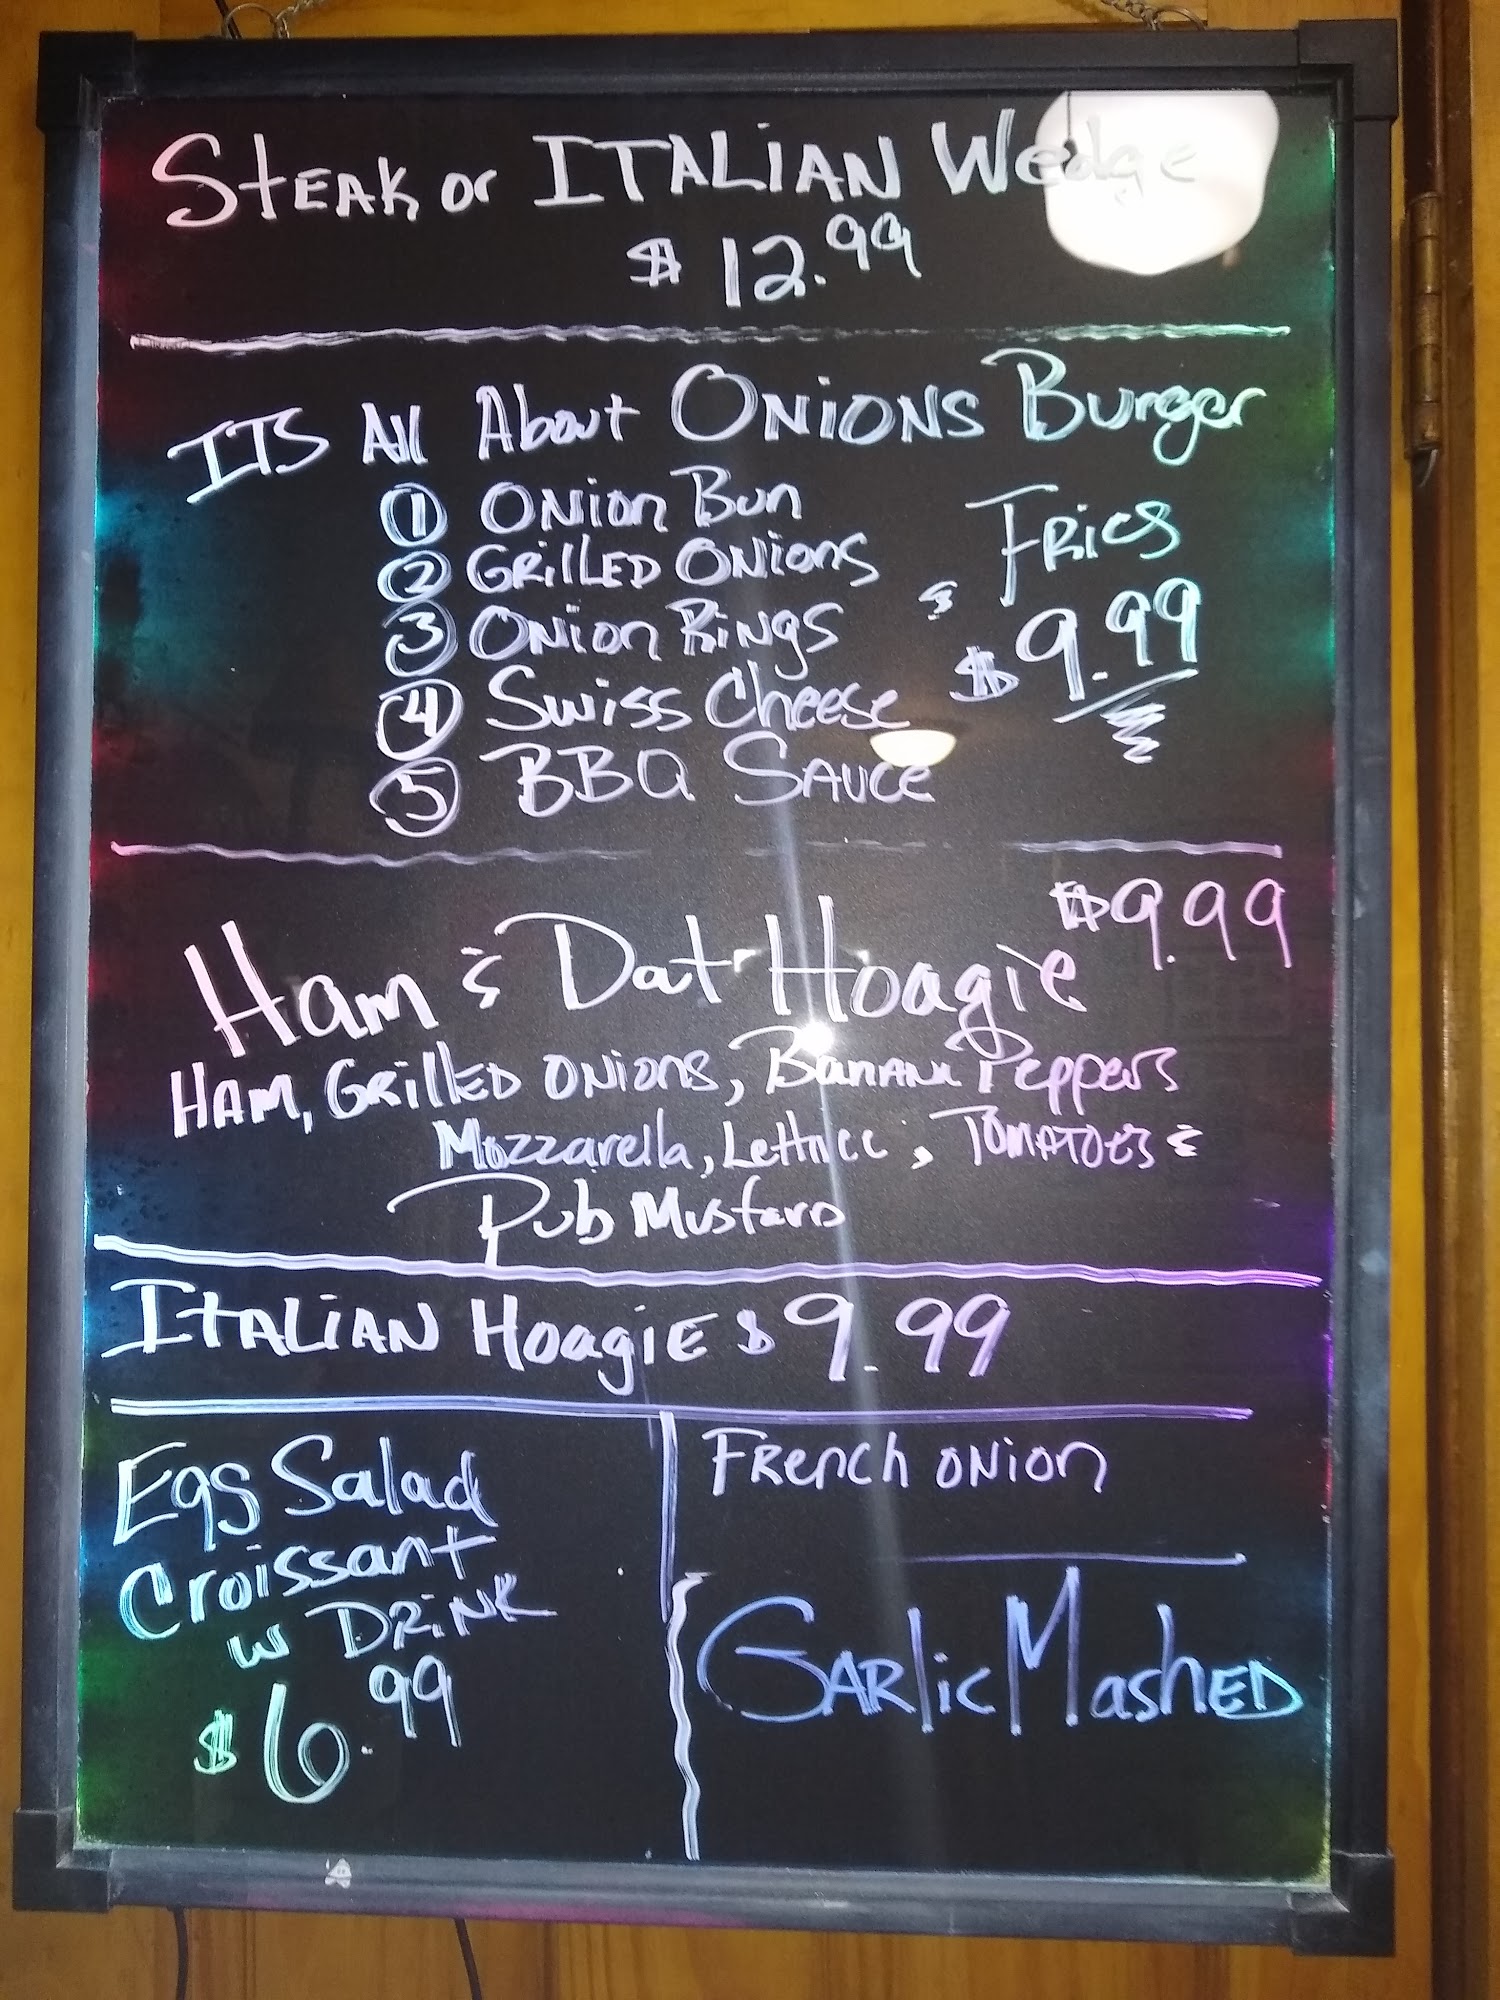 STEAK or ITALIAN Wedge
$12.99
ITS All About ONIONS Burger
① ONion Bun
② GRillED ONions
③ ONion RiNgs
④ Swiss Cheese
⑤ BBQ SAuce
& FRies
$9.99
$9.99
Ham & Dat Hoagie
HAM, GRillED ONions, BANANA Peppers
Mozzarella, Lettuce, TOMATOES &
Pub Mustard
ITALIAN HoagiE $9.99
Egg Salad
Croissant
w DRiNK
$6.99
FRench ONion
GARlic MashED